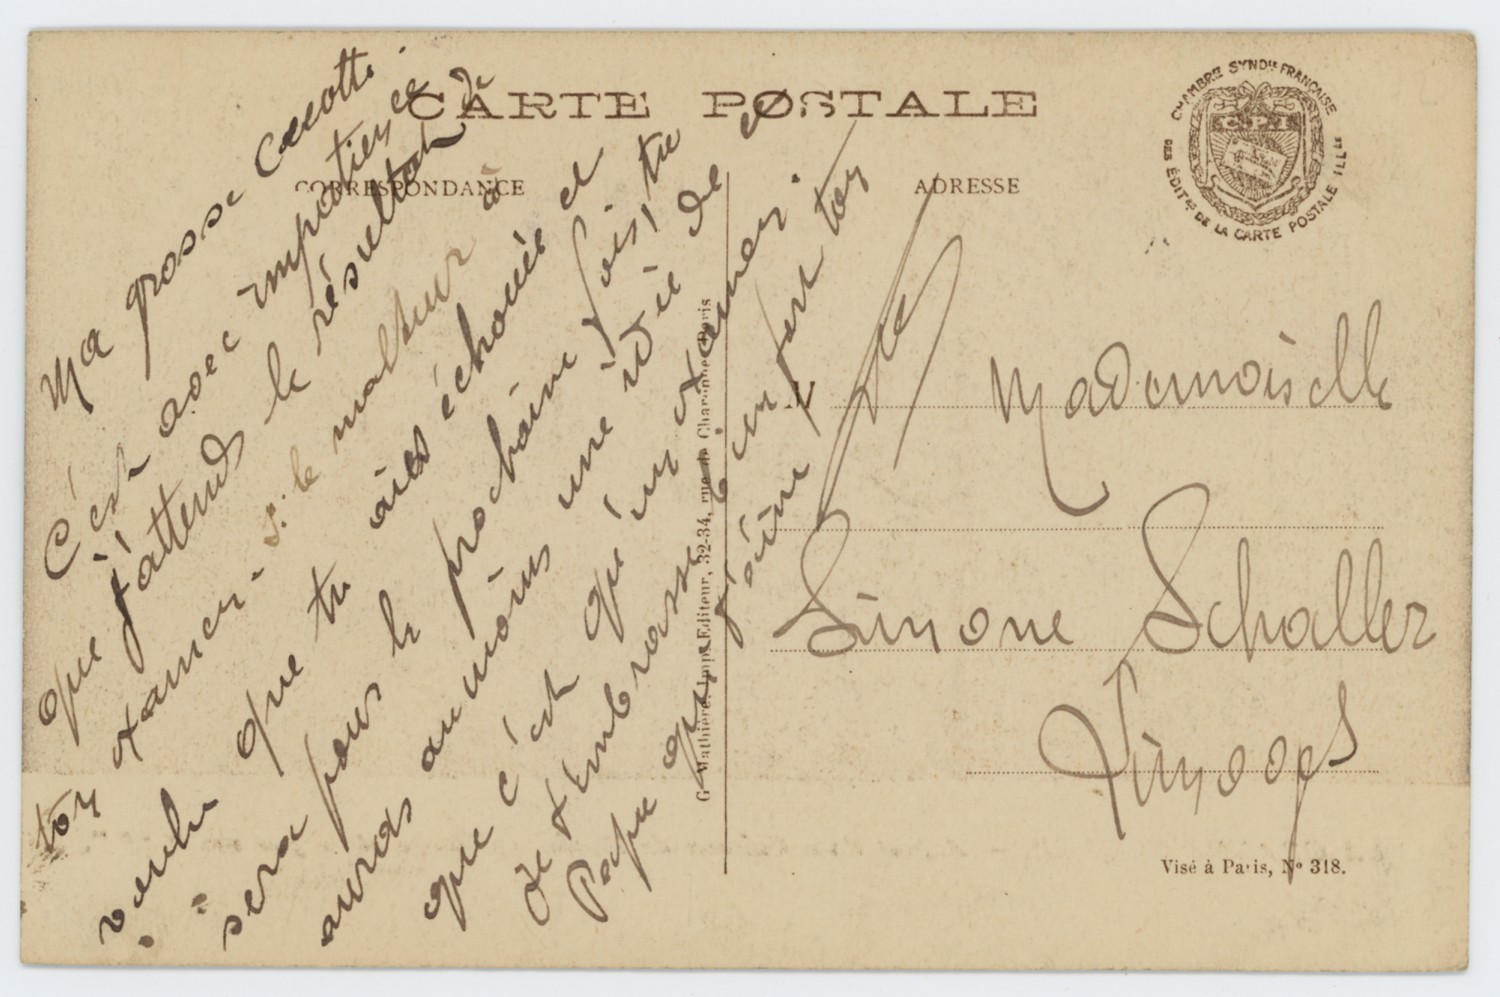 CARTE POSTALE
CORRESPONDANCE
ADRESSE
CHAMBRE SYND^le FRANÇAISE
DES ÉDIT^rs DE LA CARTE POSTALE ILL^ée
C.P.I
Ma grosse Cocotte.
C'est avec impatience
que j'attends le résultat de
ton examen. Si le malheur a
voulu que tu aies échouée et
sera pour la prochaine fois, tu
auras au moins une idée de
que c'est qu'un examen.
Je t'embrasse bien fort ton
Papa qui t'aime
Mademoiselle
Simone Schaller
Limoges
G. Mathière, Imp.-Editeur, 32-34, rue de Charonne, Paris
Visé à Paris, N° 318.